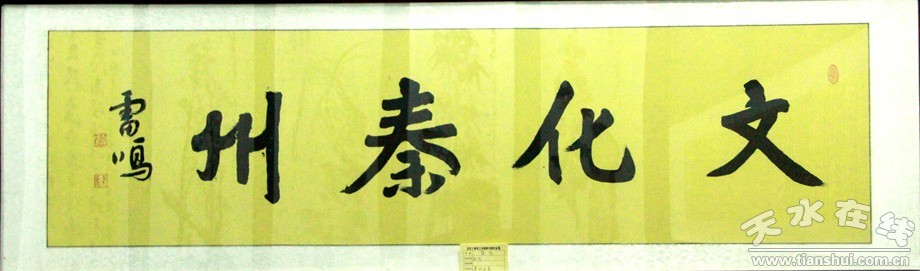 文化秦州
雷鸣
天水在线
www.tianshui.com.cn